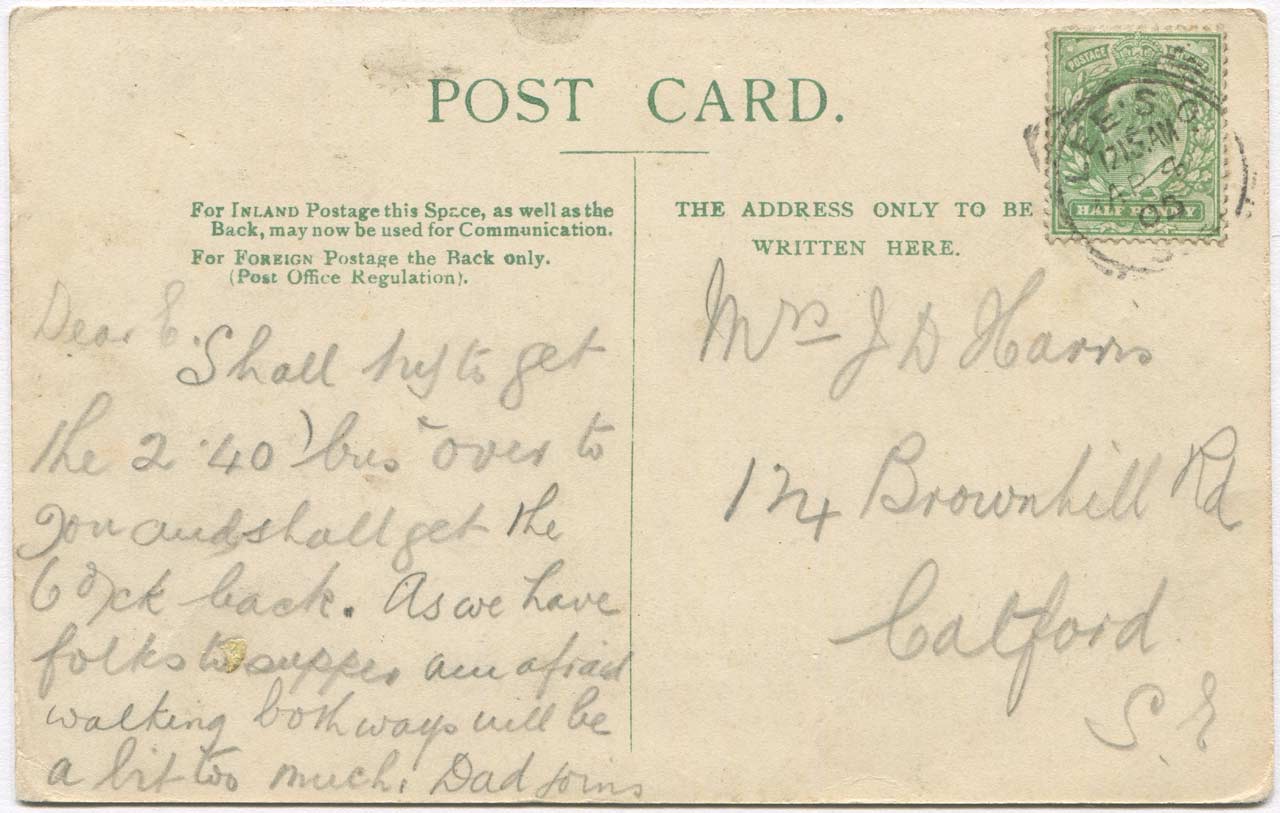 POST CARD.
For INLAND Postage this Space, as well as the
Back, may now be used for Communication.
For FOREIGN Postage the Back only.
(Post Office Regulation).
THE ADDRESS ONLY TO BE
WRITTEN HERE.
POSTAGE
HALF PENNY
LEE'S.O.
1215 AM
AP
05
Dear E.
Shall try to get
the 2.40 'bus over to
you and shall get the
6 o'/ck back. As we have
folks to supper am afraid
walking both ways will be
a bit too much. Dad joins
Mrs J D Harris
174 Brownhill Rd
Catford
S.E